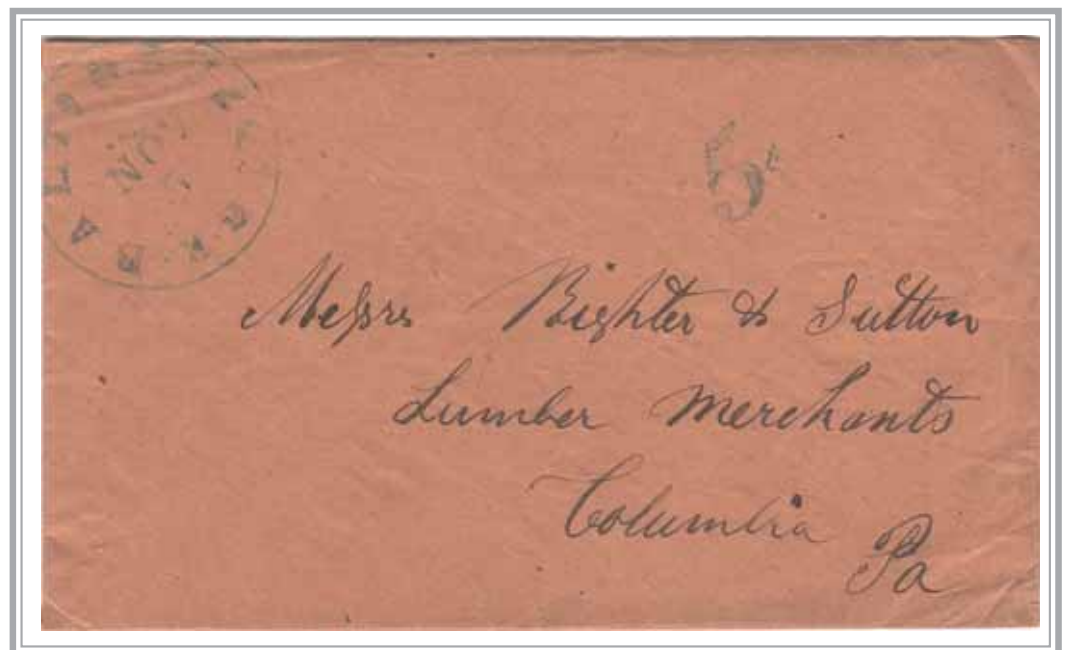 NOV
5
Messrs Bighter & Sutton
Lumber Merchants
Columbia
Pa